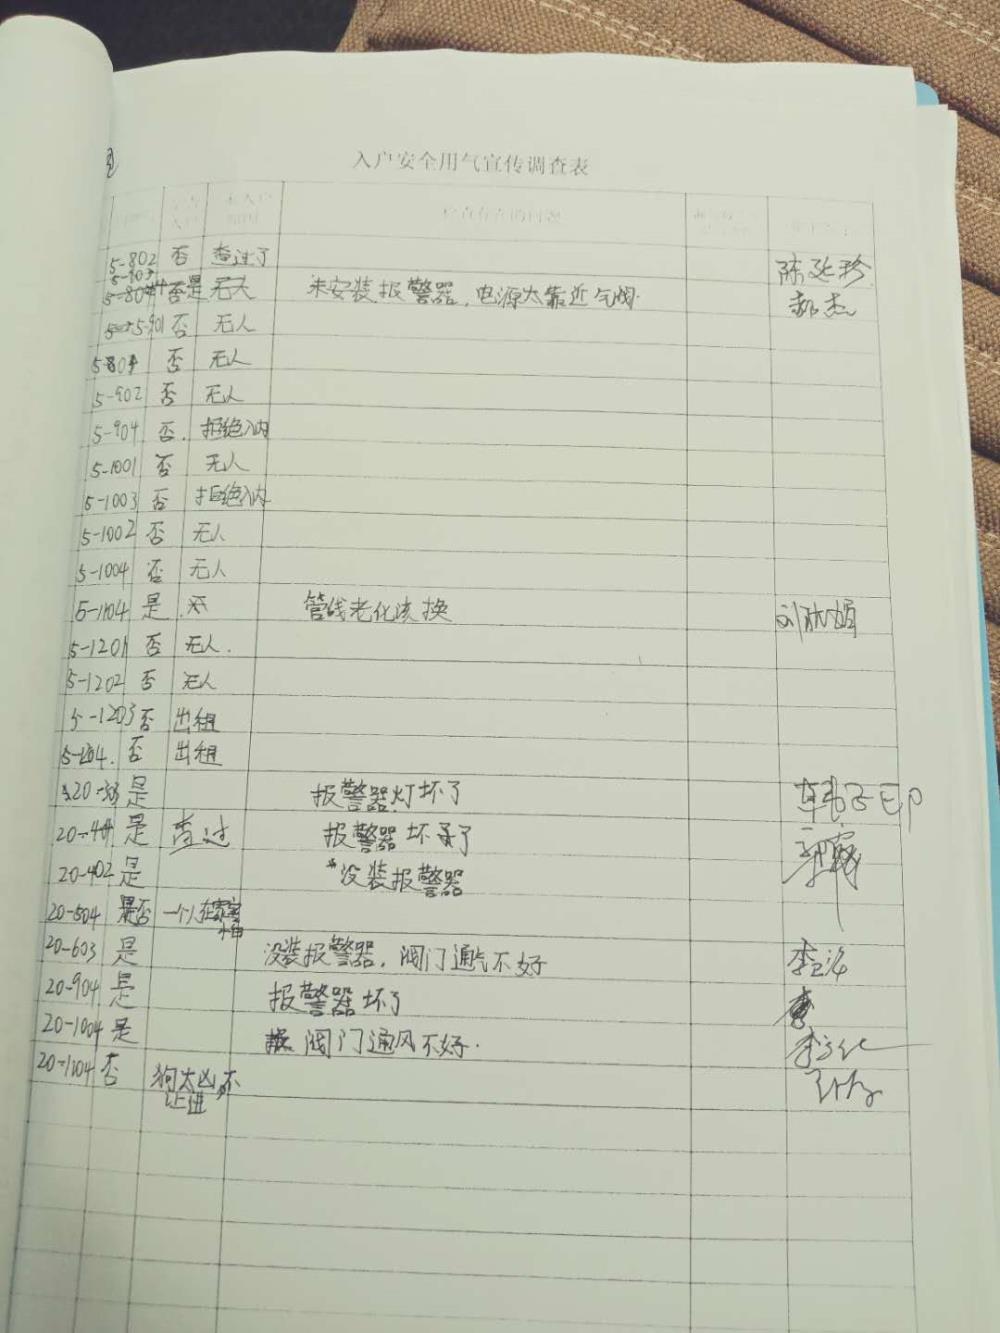 入户安全用气宣传调查表
检查存在的问题
5-802 否 查过了 陈延珍
5-803
5-804 是 未安装报警器,电源太靠近气阀. 郝杰
5-901 否 无人
5-804 否 无人
5-902 否 无人
5-904 否. 拒绝入内
5-1001 否 无人
5-1003 否 拒绝入内
5-1002 否 无人
5-1004 否 无人
5-1104 是 管线老化该换
5-1201 否 无人.
5-1202 否 无人
5-1203 否 出租
5-1204. 否 出租
20-303 是 报警器灯坏了
20-404 是 查过 报警器坏了
20-402 是 没装报警器
20-504 否 一个人在家害怕
20-603 是 没装报警器,阀门通气不好
20-904 是 报警器坏了
20-1004 是 阀门通风不好.
20-1104 否 狗太凶,不
让进